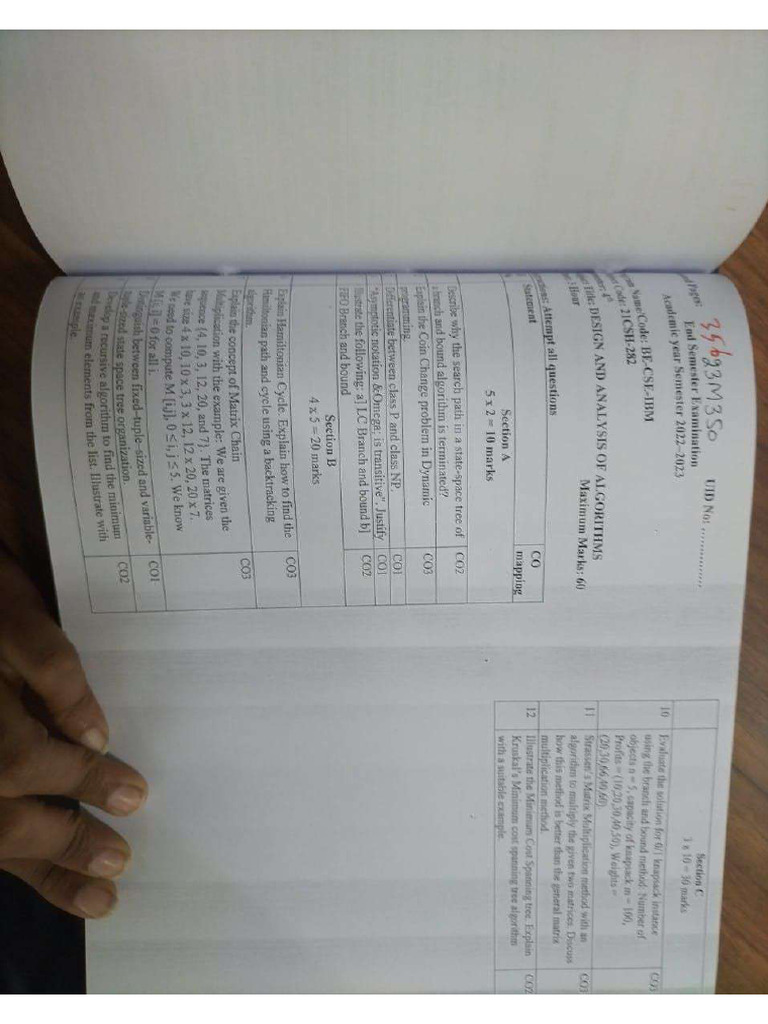 Paper:
35693M350
UID No: ...............
End Semester Examination
Academic year Semester 2022–2023
Name/Code: BE-CSE-IBM
Code: 21CSH-282
4th
Title: DESIGN AND ANALYSIS OF ALGORITHMS
Hour Maximum Marks: 60
Attempt all questions
Statement CO mapping
Section A
5 x 2 = 10 marks
Describe why the search path in a state-space tree of CO2
a branch and bound algorithm is terminated?
Explain the Coin Change problem in Dynamic CO3
programming.
Differentiate between class P and class NP. CO1
"Asymptotic notation &Omega; is transitive". Justify CO1
Illustrate the following: a] LC Branch and bound b] CO2
FIFO Branch and bound
Section B
4 x 5 = 20 marks
Explain Hamiltonian Cycle. Explain how to find the CO3
Hamiltonian path and cycle using a backtracking
algorithm.
Explain the concept of Matrix Chain CO3
Multiplication with the example: We are given the
sequence {4, 10, 3, 12, 20, and 7}. The matrices
have size 4 x 10, 10 x 3, 3 x 12, 12 x 20, 20 x 7.
We need to compute M [i,j], 0 ≤ i, j ≤ 5. We know
M [i, i] = 0 for all i.
Distinguish between fixed-tuple-sized and variable- CO1
tuple-sized state space tree organization.
Develop a recursive algorithm to find the minimum CO2
and maximum elements from the list. Illustrate with
an example.
Section C
3 x 10 = 30 marks
10 Evaluate the solution for 0/1 knapsack instance
using the branch and bound method. Number of
objects n = 5, capacity of knapsack m = 100,
Profits = (10,20,30,40,50), Weights =
(20,30,66,40,60)
11 Strassen's Matrix Multiplication method with an
algorithm to multiply the given two matrices. Discuss
how this method is better than the general matrix
multiplication method.
12 Illustrate the Minimum Cost Spanning tree. Explain CO2
Kruskal's Minimum cost spanning tree algorithm
with a suitable example.